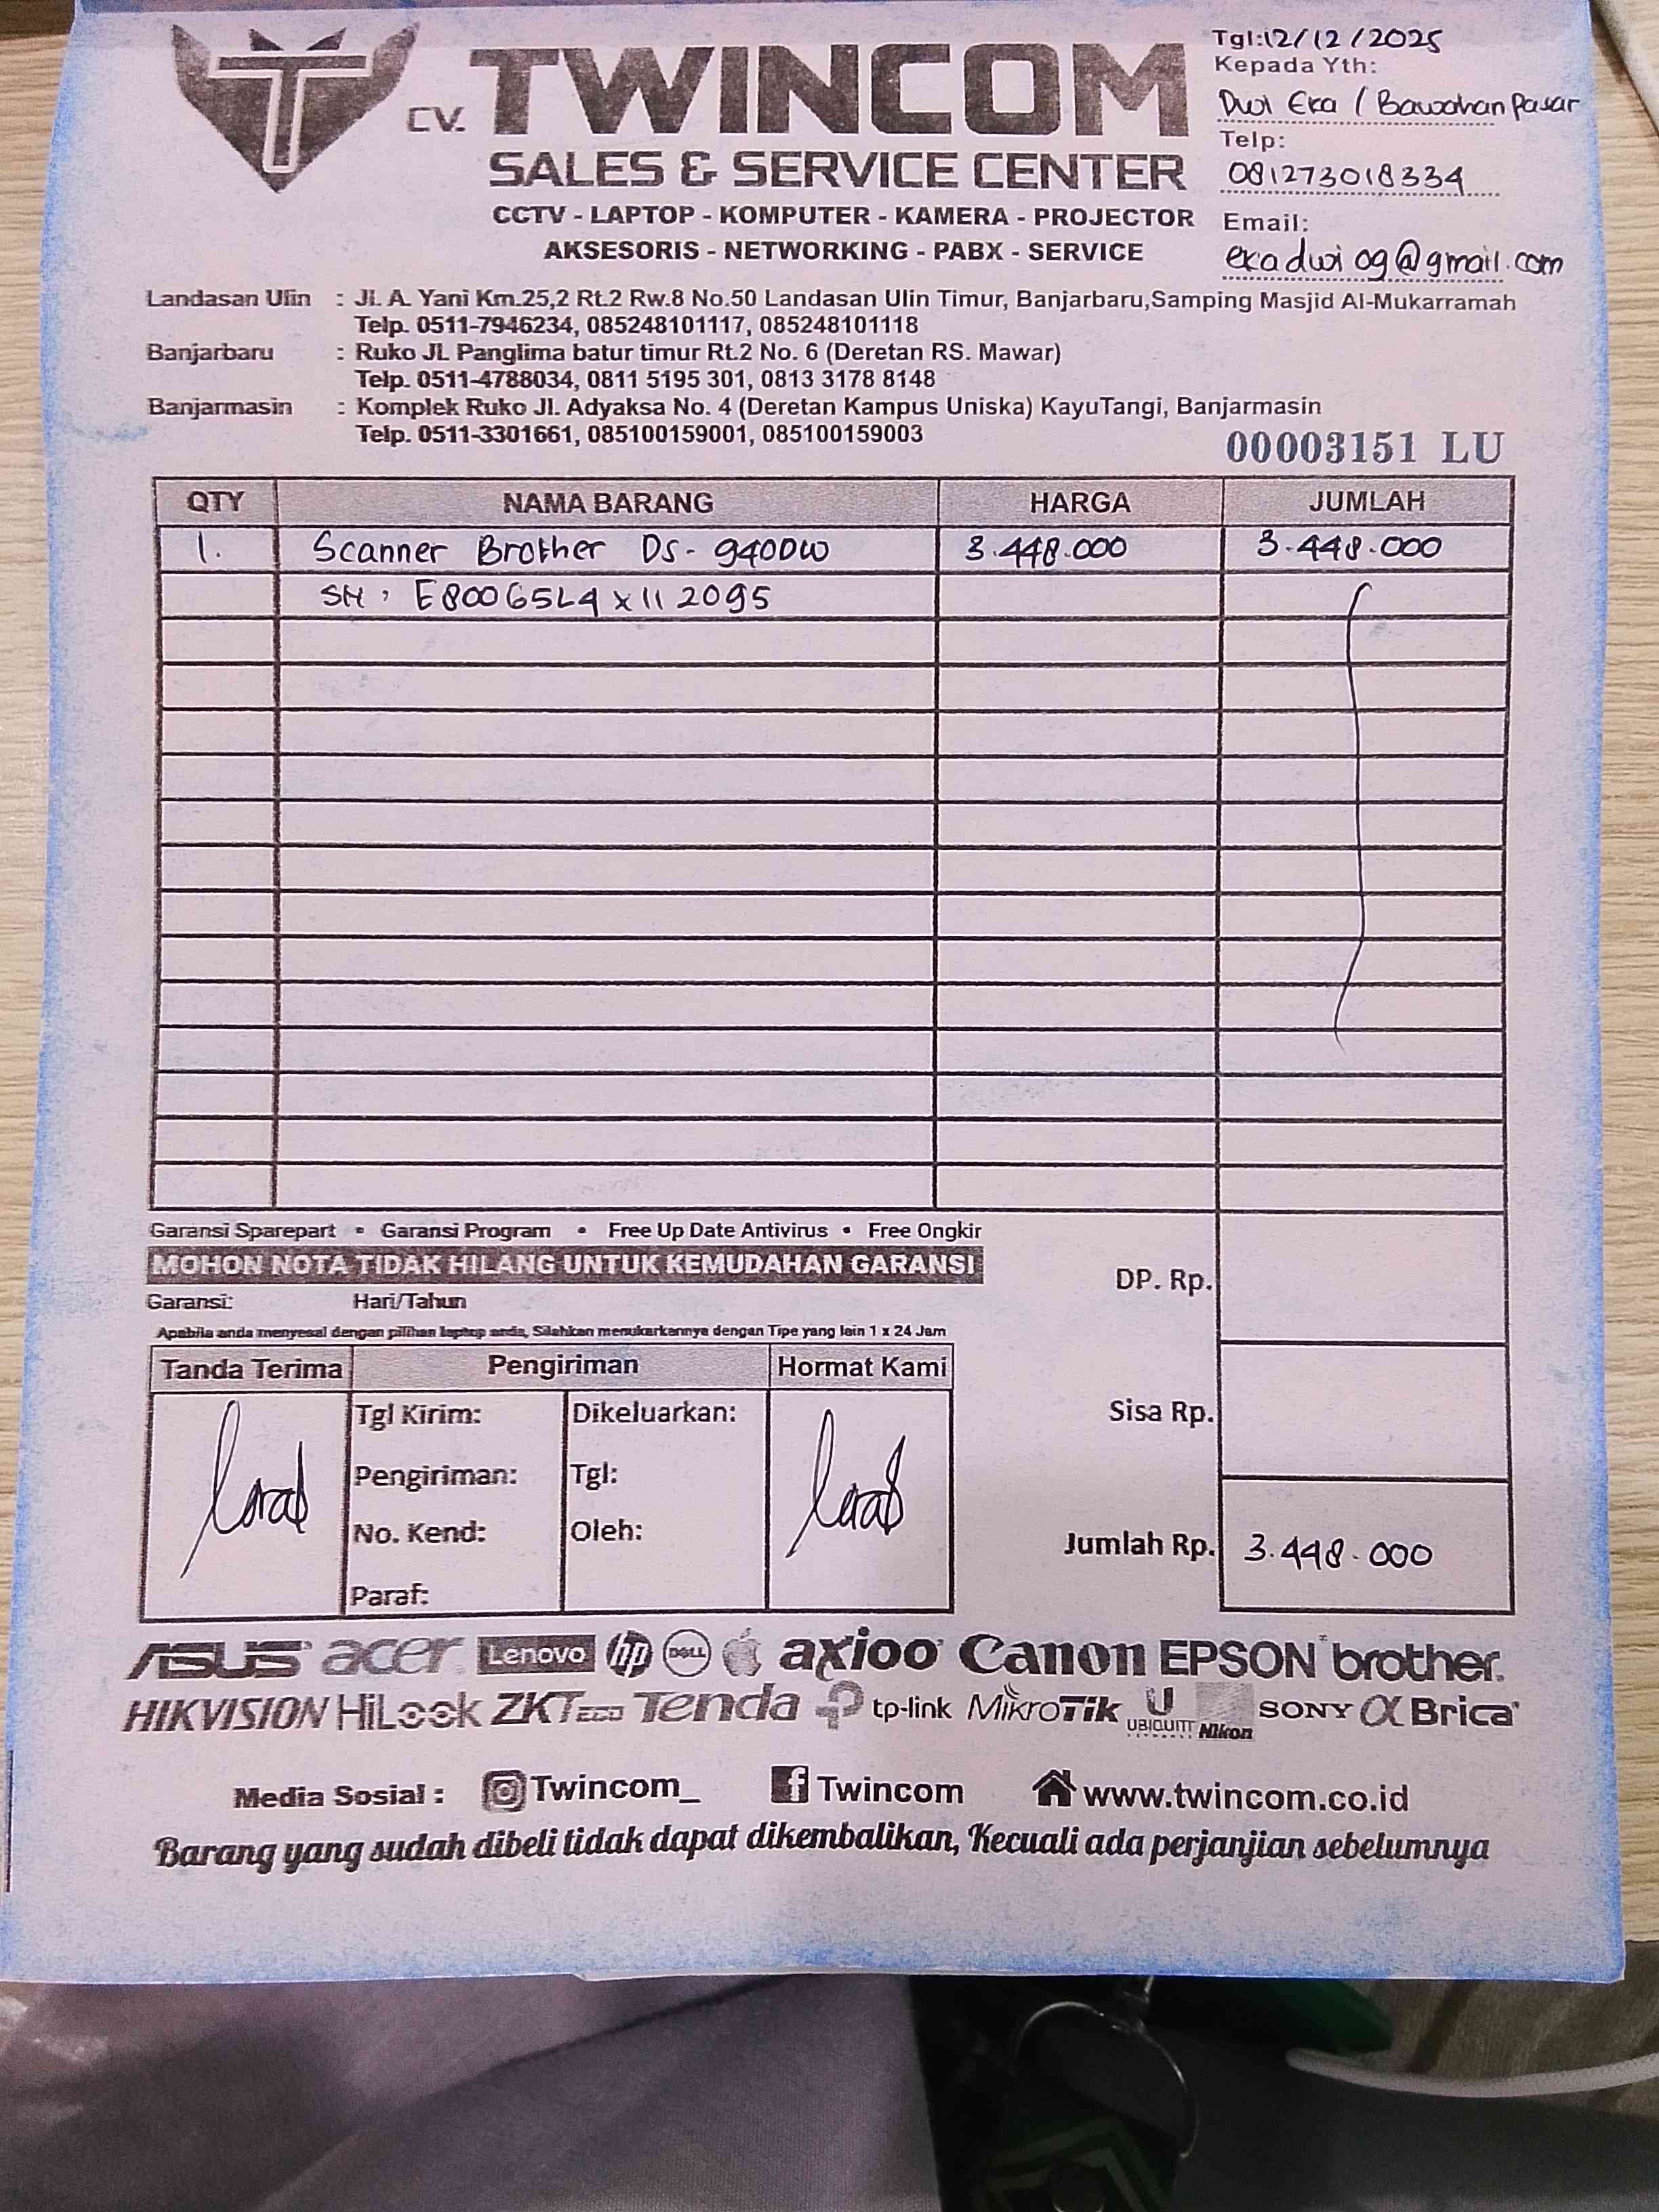 Tgl:12/12/2025
CV. TWINCOM
Kepada Yth:
Dwi Eka / Bawahan Pasar
SALES & SERVICE CENTER
Telp:
081273018334
CCTV - LAPTOP - KOMPUTER - KAMERA - PROJECTOR
AKSESORIS - NETWORKING - PABX - SERVICE
Email:
ekadwi09@gmail.com
Landasan Ulin : Jl. A. Yani Km.25,2 Rt.2 Rw.8 No.50 Landasan Ulin Timur, Banjarbaru,Samping Masjid Al-Mukarramah
Telp. 0511-7946234, 085248101117, 085248101118
Banjarbaru : Ruko JL Panglima batur timur Rt.2 No. 6 (Deretan RS. Mawar)
Telp. 0511-4788034, 0811 5195 301, 0813 3178 8148
Banjarmasin : Komplek Ruko Jl. Adyaksa No. 4 (Deretan Kampus Uniska) KayuTangi, Banjarmasin
Telp. 0511-3301661, 085100159001, 085100159003
00003151 LU
QTY NAMA BARANG HARGA JUMLAH
1. Scanner Brother DS-940DW 3.448.000 3.448.000
SN : E80065L4X112095
Garansi Sparepart • Garansi Program • Free Up Date Antivirus • Free Ongkir
MOHON NOTA TIDAK HILANG UNTUK KEMUDAHAN GARANSI
DP. Rp.
Garansi: Hari/Tahun
Apabila anda menyesal dengan pilihan laptop anda, Silahkan menukarkannya dengan Tipe yang lain 1 x 24 Jam
Tanda Terima Pengiriman Hormat Kami
Tgl Kirim: Dikeluarkan:
Sisa Rp.
Pengiriman: Tgl:
No. Kend: Oleh:
Jumlah Rp. 3.448.000
Paraf:
ASUS acer Lenovo hp DELL axioo Canon EPSON brother
HIKVISION HiLook ZKTeco Tenda tp-link MikroTik UBIQUITI Nikon SONY α Brica
Media Sosial : Twincom_ Twincom www.twincom.co.id
Barang yang sudah dibeli tidak dapat dikembalikan, Kecuali ada perjanjian sebelumnya